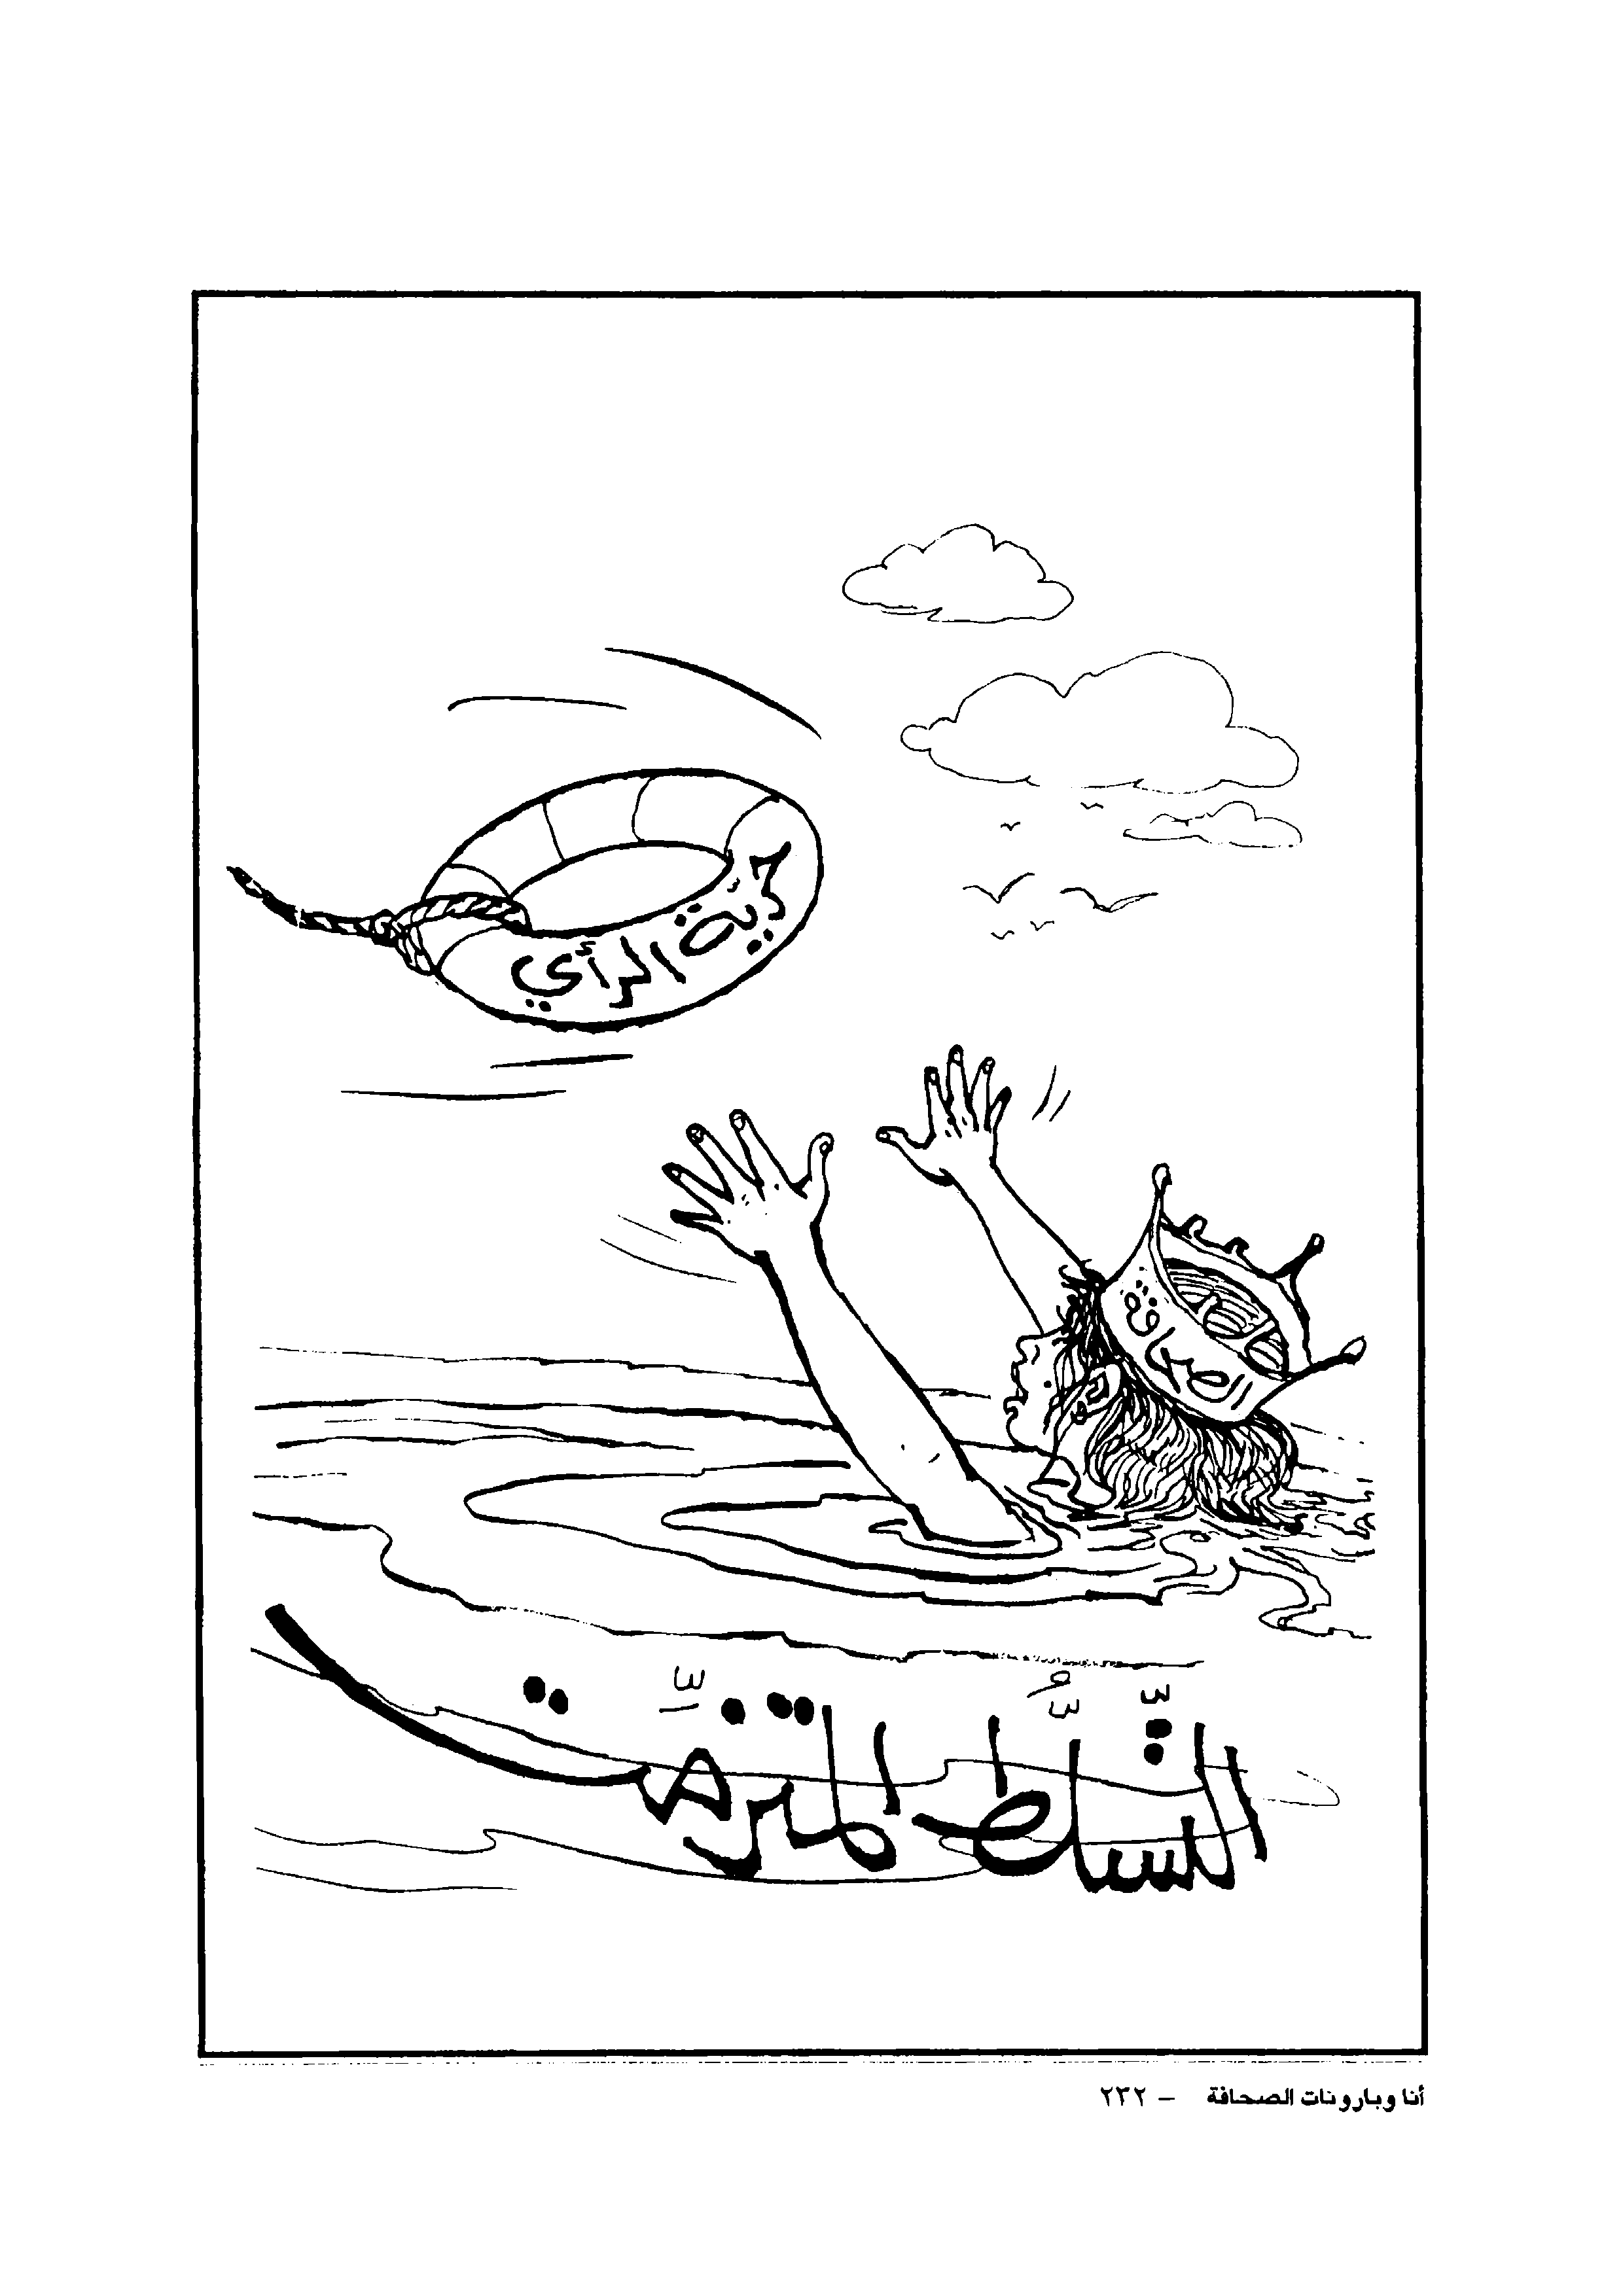 حرية الرأي
الصحافة
التّسلُّط المتزمِّت
أنا وبارونات الصحافة – ٢٣٢